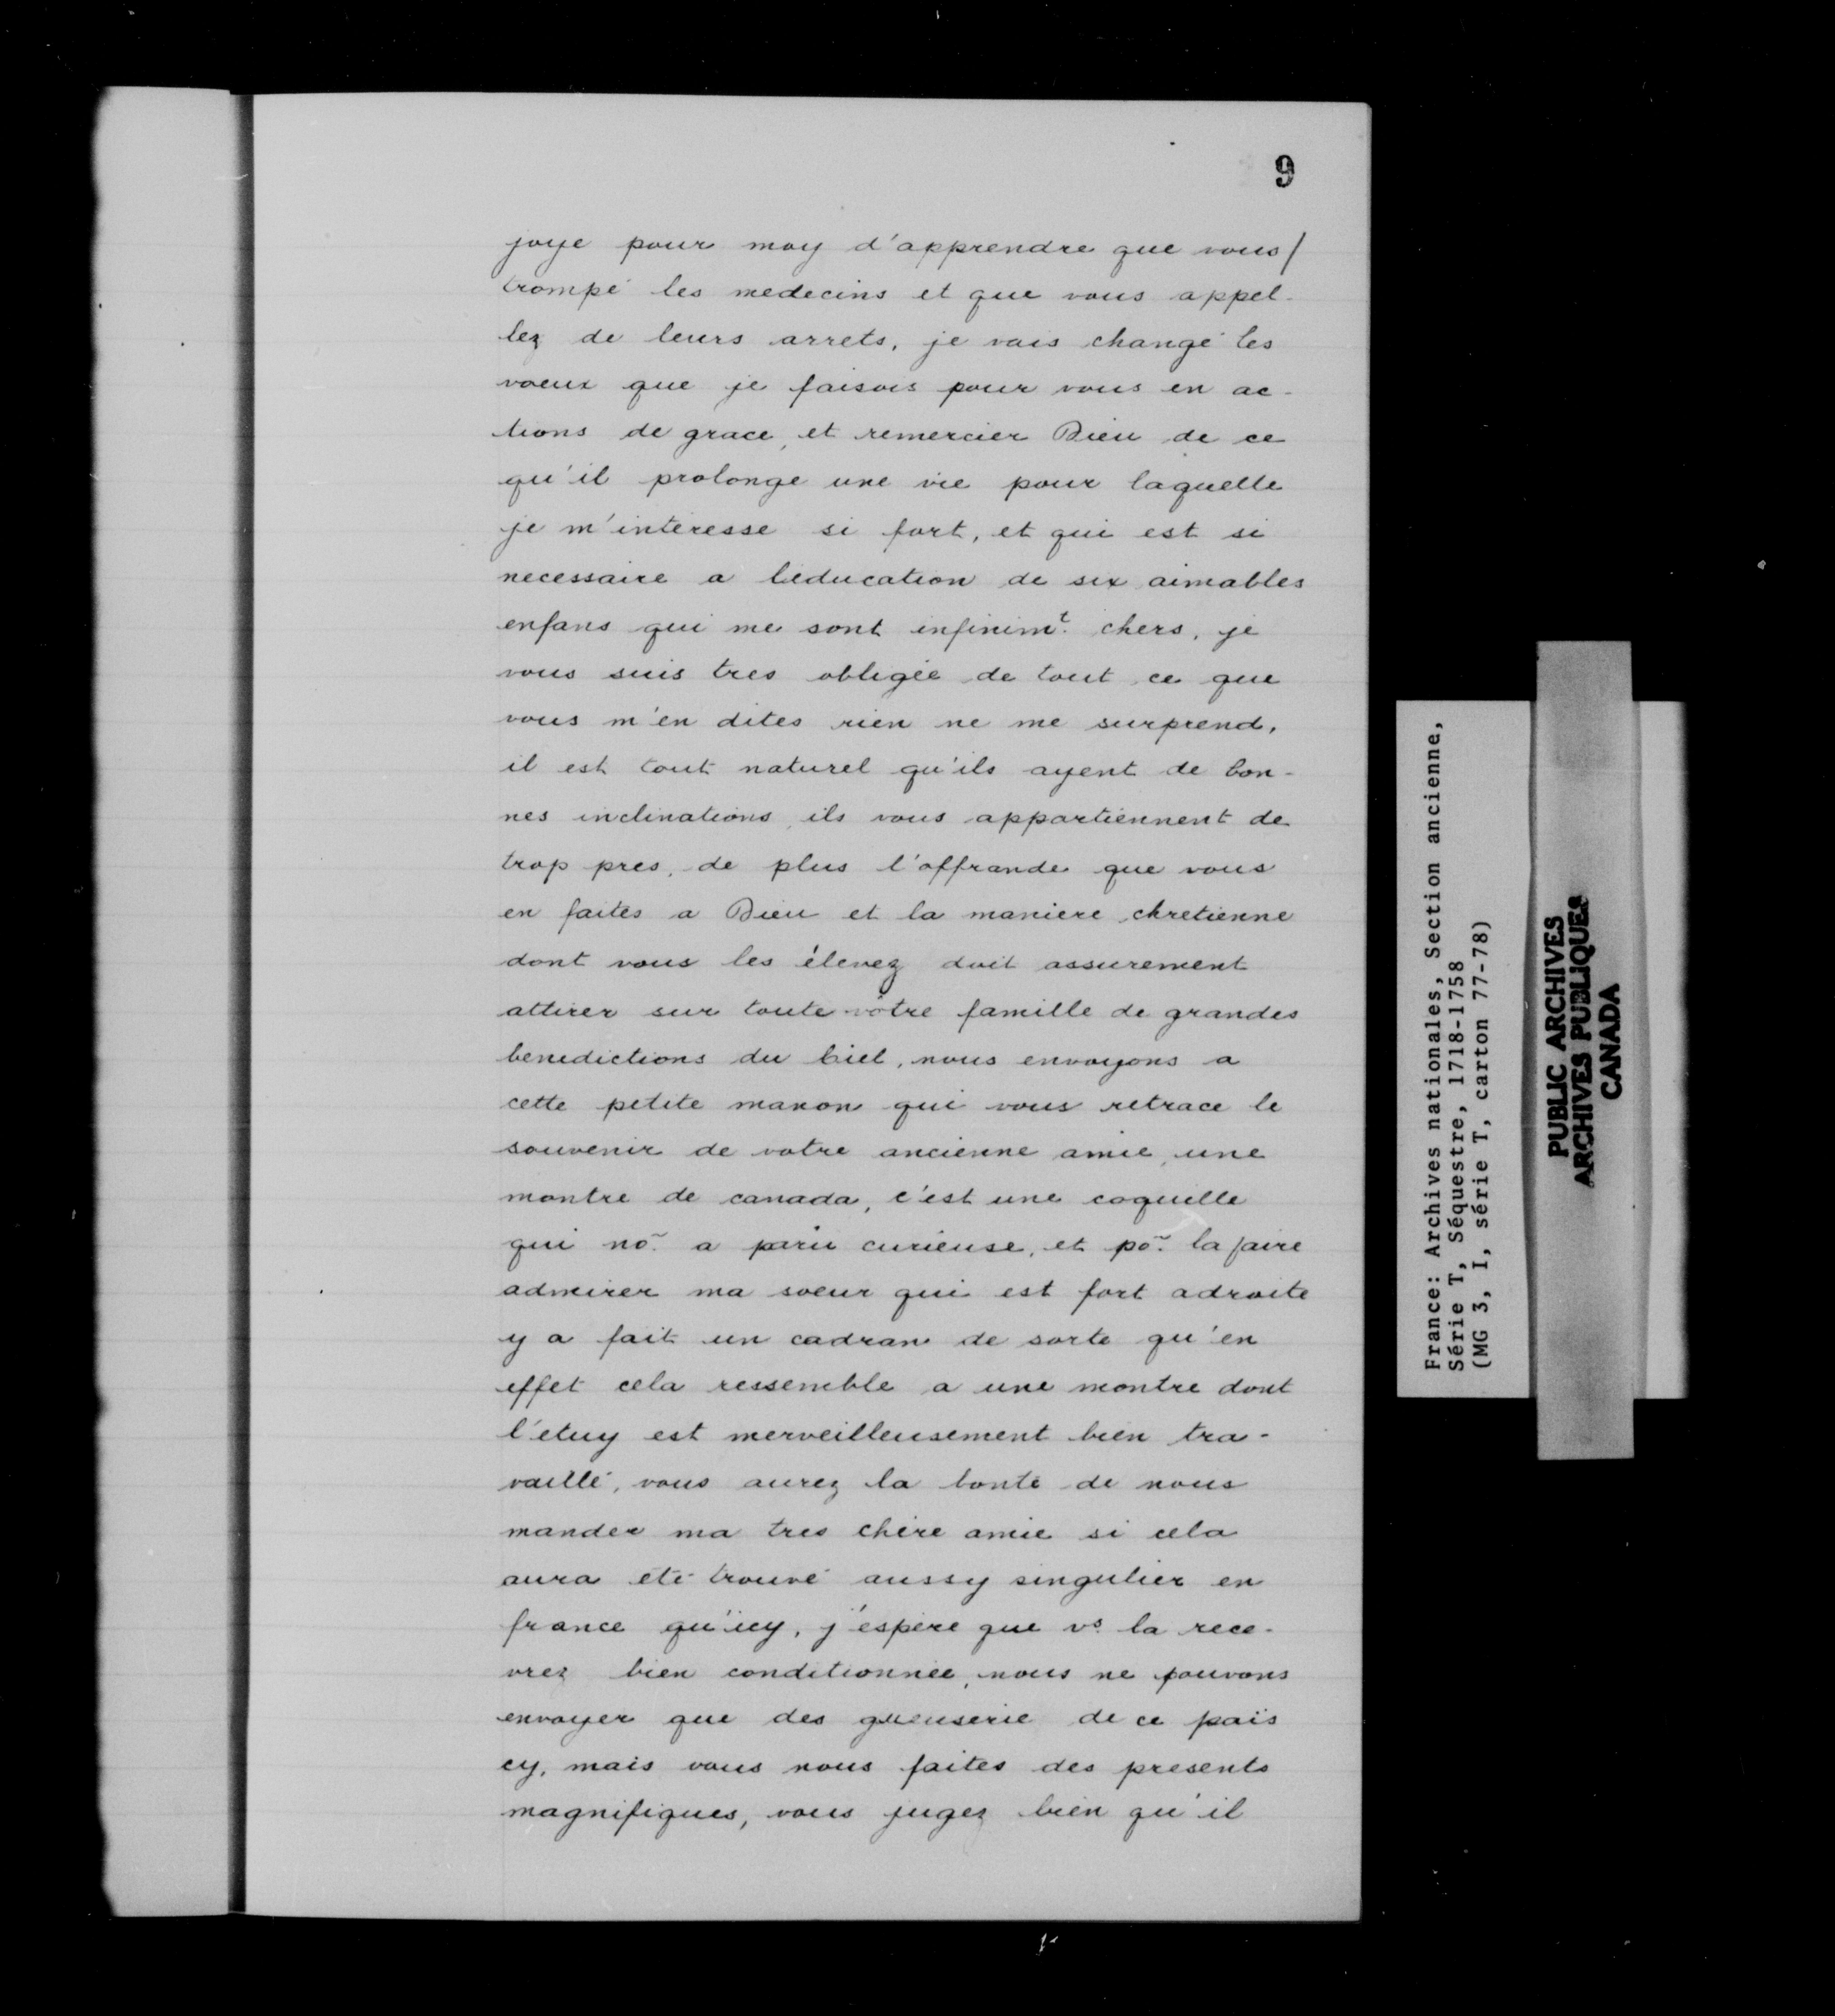 9
joye pour moy d'apprendre que vous/
trompé les medecins et que vous appel-
lez de leurs arrets, je vais changé les
voeux que je faisois pour vous en ac-
tions de grace, et remercier Dieu de ce
qu'il prolonge une vie pour laquelle
je m'interesse si fort, et qui est si
necessaire a l'education de six aimables
enfans qui me sont infinimt. chers, je
vous suis tres obligée de tout ce que
vous m'en dites rien ne me surprend,
il est tout naturel qu'ils ayent de bon-
nes inclinations, ils vous appartiennent de
trop pres, de plus l'offrande que vous
en faites a Dieu et la maniere chretienne
dont vous les élevez doit assurement
attirer sur toute vôtre famille de grandes
benedictions du ciel, nous envoyons a
cette petite manon qui vous retrace le
souvenir de votre ancienne amie, une
montre de canada, c'est une coquille
qui nõ. a paru curieuse, et põ. la faire
admirer ma soeur qui est fort adroite
y a fait un cadran de sorte qu'en
effet cela ressemble a une montre dont
l'etuy est merveilleusement bien tra-
vaillé, vous aurez la bonté de nous
mander ma tres chère amie si cela
aura eté trouvé aussy singulier en
france qu'icy, j'espère que vs. la rece-
vrez bien conditionnée, nous ne pouvons
envoyer que des gueuserie de ce païs
cy, mais vous nous faites des presents
magnifiques, vous jugez bien qu'il
France: Archives nationales, Section ancienne,
Série T, Séquestre, 1718-1758
(MG 3, I, série T, carton 77-78)
PUBLIC ARCHIVES
ARCHIVES PUBLIQUES
CANADA